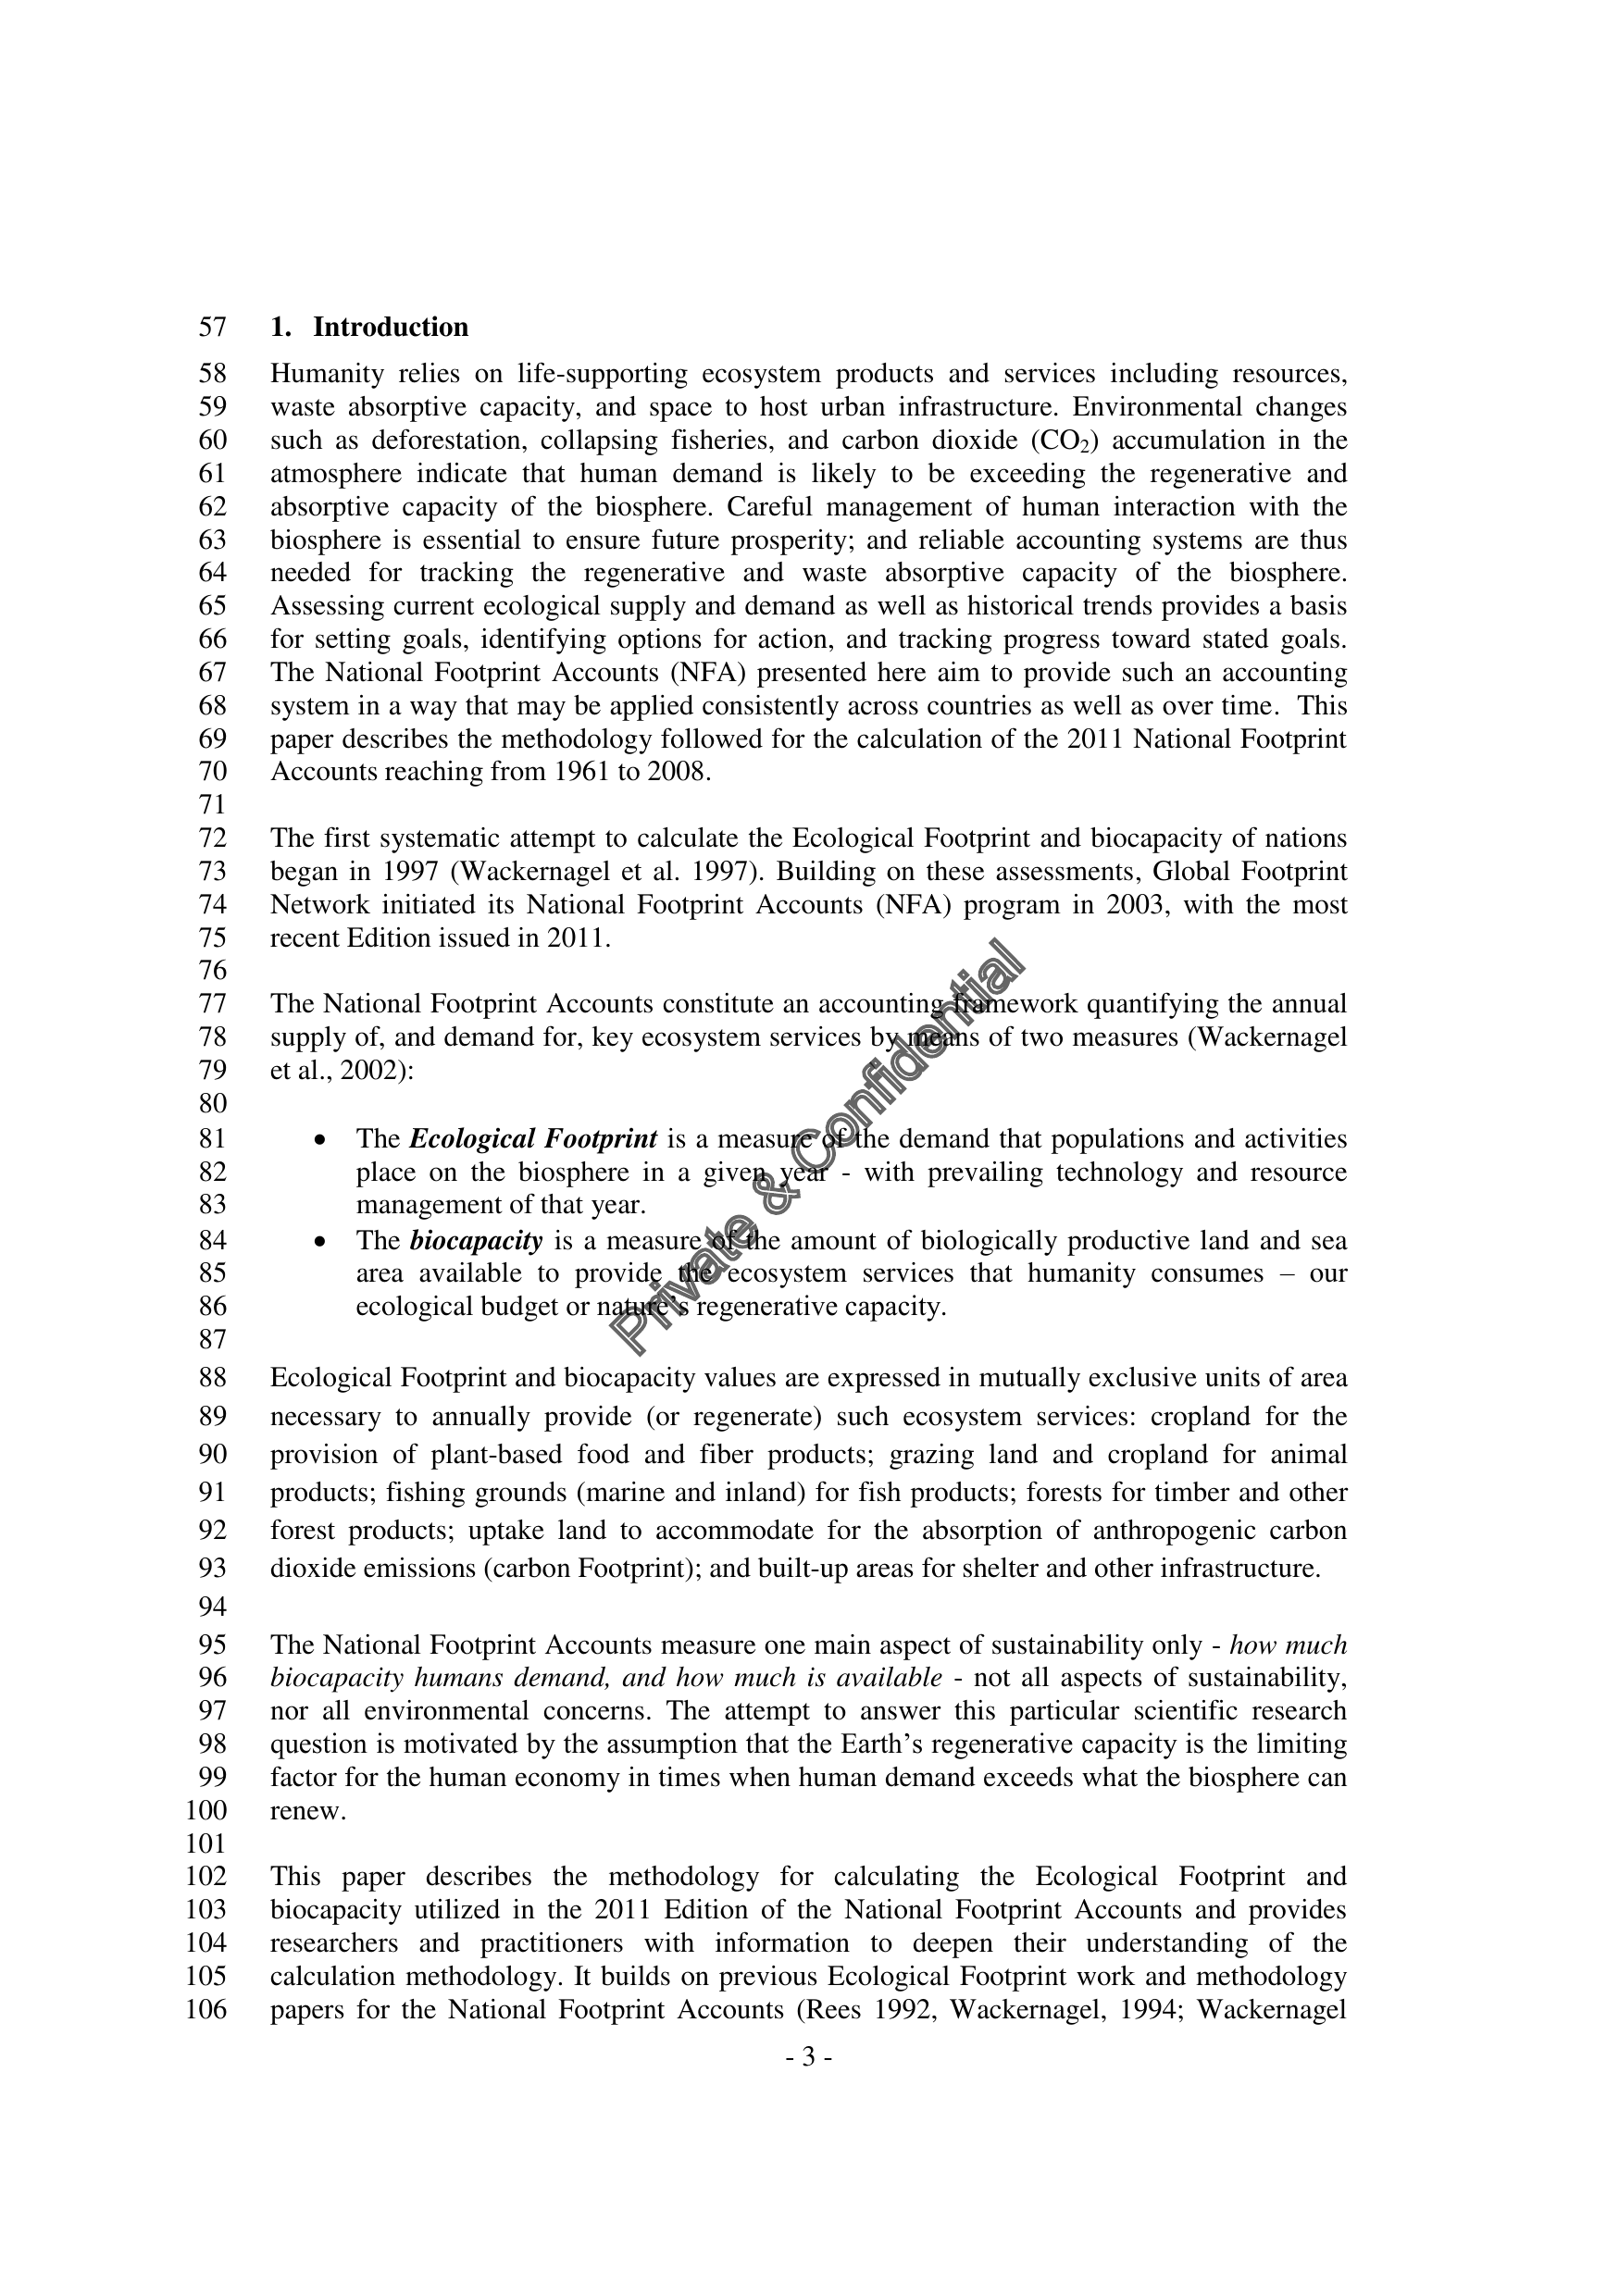 57 1. Introduction
58 Humanity relies on life-supporting ecosystem products and services including resources,
59 waste absorptive capacity, and space to host urban infrastructure. Environmental changes
60 such as deforestation, collapsing fisheries, and carbon dioxide (CO₂) accumulation in the
61 atmosphere indicate that human demand is likely to be exceeding the regenerative and
62 absorptive capacity of the biosphere. Careful management of human interaction with the
63 biosphere is essential to ensure future prosperity; and reliable accounting systems are thus
64 needed for tracking the regenerative and waste absorptive capacity of the biosphere.
65 Assessing current ecological supply and demand as well as historical trends provides a basis
66 for setting goals, identifying options for action, and tracking progress toward stated goals.
67 The National Footprint Accounts (NFA) presented here aim to provide such an accounting
68 system in a way that may be applied consistently across countries as well as over time. This
69 paper describes the methodology followed for the calculation of the 2011 National Footprint
70 Accounts reaching from 1961 to 2008.
71
72 The first systematic attempt to calculate the Ecological Footprint and biocapacity of nations
73 began in 1997 (Wackernagel et al. 1997). Building on these assessments, Global Footprint
74 Network initiated its National Footprint Accounts (NFA) program in 2003, with the most
75 recent Edition issued in 2011.
76
77 The National Footprint Accounts constitute an accounting framework quantifying the annual
78 supply of, and demand for, key ecosystem services by means of two measures (Wackernagel
79 et al., 2002):
80
81 • The Ecological Footprint is a measure of the demand that populations and activities
82 place on the biosphere in a given year - with prevailing technology and resource
83 management of that year.
84 • The biocapacity is a measure of the amount of biologically productive land and sea
85 area available to provide the ecosystem services that humanity consumes – our
86 ecological budget or nature's regenerative capacity.
87
88 Ecological Footprint and biocapacity values are expressed in mutually exclusive units of area
89 necessary to annually provide (or regenerate) such ecosystem services: cropland for the
90 provision of plant-based food and fiber products; grazing land and cropland for animal
91 products; fishing grounds (marine and inland) for fish products; forests for timber and other
92 forest products; uptake land to accommodate for the absorption of anthropogenic carbon
93 dioxide emissions (carbon Footprint); and built-up areas for shelter and other infrastructure.
94
95 The National Footprint Accounts measure one main aspect of sustainability only - how much
96 biocapacity humans demand, and how much is available - not all aspects of sustainability,
97 nor all environmental concerns. The attempt to answer this particular scientific research
98 question is motivated by the assumption that the Earth's regenerative capacity is the limiting
99 factor for the human economy in times when human demand exceeds what the biosphere can
100 renew.
101
102 This paper describes the methodology for calculating the Ecological Footprint and
103 biocapacity utilized in the 2011 Edition of the National Footprint Accounts and provides
104 researchers and practitioners with information to deepen their understanding of the
105 calculation methodology. It builds on previous Ecological Footprint work and methodology
106 papers for the National Footprint Accounts (Rees 1992, Wackernagel, 1994; Wackernagel
- 3 -
Private & Confidential